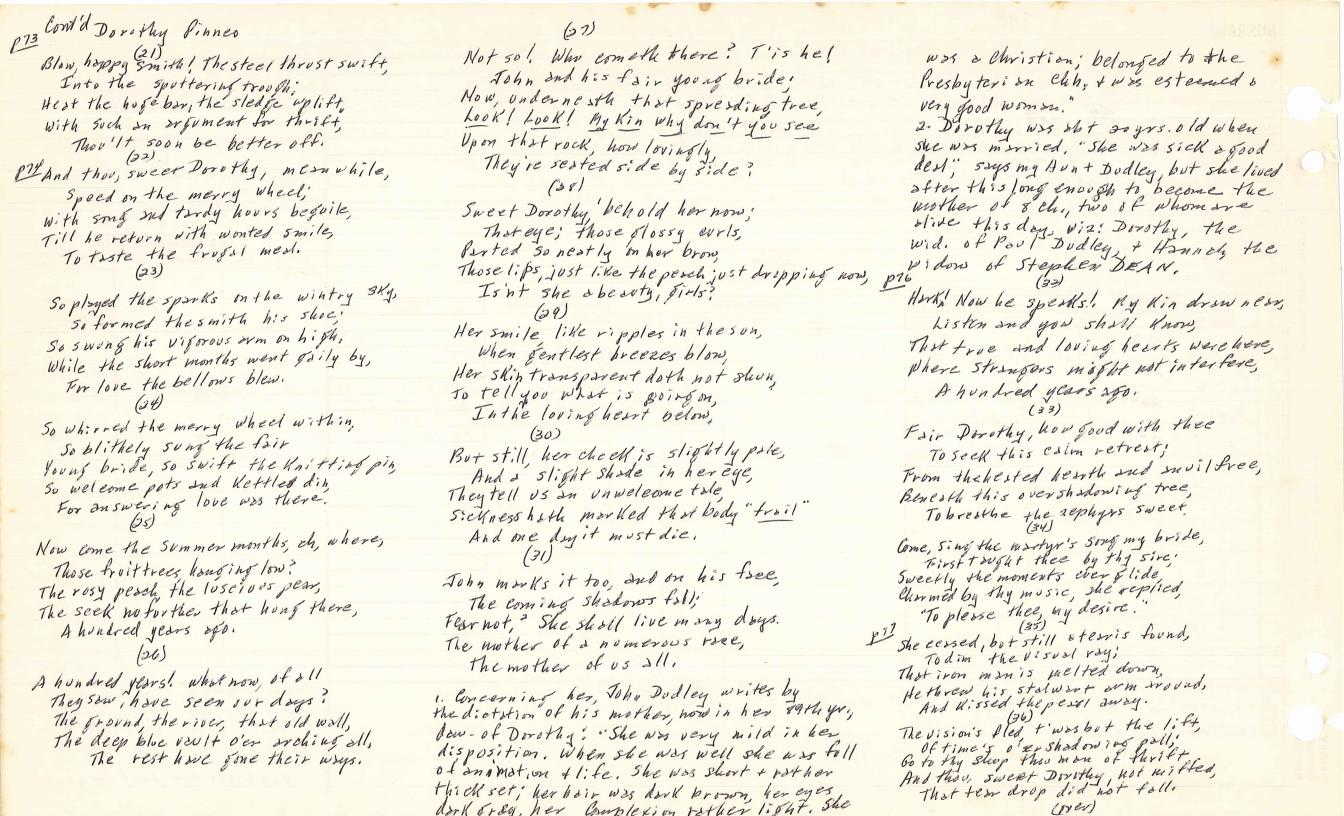 Cont'd Dorothy Pinneo
p73
(21)
Blow, happy Smith! The steel thrust swift,
Into the sputtering trough;
Heat the huge bar, the sledge uplift,
With such an argument for thrift,
Thou'lt soon be better off.
(22)
p74
And thou, sweet Dorothy, meanwhile,
Speed on the merry wheel;
With song and tardy hours beguile,
Till he return with wonted smile,
To taste the frugal meal.
(23)
So played the sparks on the wintry sky,
So formed the smith his shoe;
So swung his vigorous arm on high,
While the short months went gaily by,
For love the bellows blew.
(24)
So whirred the merry wheel within,
So blithely sung the fair
Young bride, so swift the knitting pin,
So welcome pots and kettles din,
For answering love was there.
(25)
Now come the Summer months, oh, where,
Those fruit trees, hanging low?
The rosy peach, the luscious pear,
The seek no further that hung there,
A hundred years ago.
(26)
A hundred years! What now, of all
They saw, have seen our days?
The ground, the river, that old wall,
The deep blue vault o'er arching all,
The rest have gone their ways.
(27)
Not so! Who cometh there? T'is he!
John and his fair young bride;
Now, underneath that spreading tree,
Look! Look! My Kin why don't you see
Upon that rock, how lovingly,
They're seated side by side?
(28)
Sweet Dorothy,' behold her now;
That eye; those glossy curls,
Parted so neatly on her brow,
Those lips, just like the peach just dropping now,
Isn't she a beauty, girls?
(29)
Her smile like ripples in the sun,
When gentlest breezes blow,
Her skin transparent doth not shun,
To tell you what is going on,
In the loving heart below,
(30)
But still, her cheek is slightly pale,
And a slight shade in her eye,
They tell us an unwelcome tale,
Sickness hath marked that body "frail"
And one day it must die.
(31)
John marks it too, and on his face,
The coming shadows fall;
Fear not,² She shall live many days.
The mother of a numerous race,
The mother of us all.
1. Concerning her, John Dudley writes by
the dictation of his mother, now in her 89th yr.,
dau- of Dorothy: "She was very mild in her
disposition. When she was well she was full
of animation & life. She was short & rather
thick set; her hair was dark brown, her eyes
dark gray, her complexion rather light. She
was a Christian; belonged to the
Presbyterian Chh, & was esteemed a
very good woman."
2. Dorothy was abt 20 yrs. old when
she was married. "She was sick a good
deal", says my Aunt Dudley, but she lived
after this long enough to become the
mother of 8 ch., two of whom are
alive this day, viz: Dorothy, the
wid. of Paul Dudley, & Hannah the
widow of Stephen DEAN.
p76
(32)
Hark! Now he speaks! My Kin draw near,
Listen and you shall know,
That true and loving hearts were here,
Where strangers might not interfere,
A hundred years ago.
(33)
Fair Dorothy, how good with thee
To seek this calm retreat;
From the hested hearth and anvil free,
Beneath this overshadowing tree,
To breathe the zephyrs sweet,
(34)
Come, sing the martyr's song my bride,
First taught thee by thy sire;
Sweetly the moments ever glide,
Charmed by thy music, she replied,
"To please thee, my desire."
(35)
p77
She ceased, but still a tear is found,
To dim the visual ray;
That iron man is melted down,
He threw his stalwart arm around,
And kissed the pearl away.
(36)
The vision's fled, t'was but the lift,
Of time's o'er shadowing pall;
Go to thy shop thou man of thrift
And thou, sweet Dorothy, not miffed,
That tear drop did not fall.
(over)